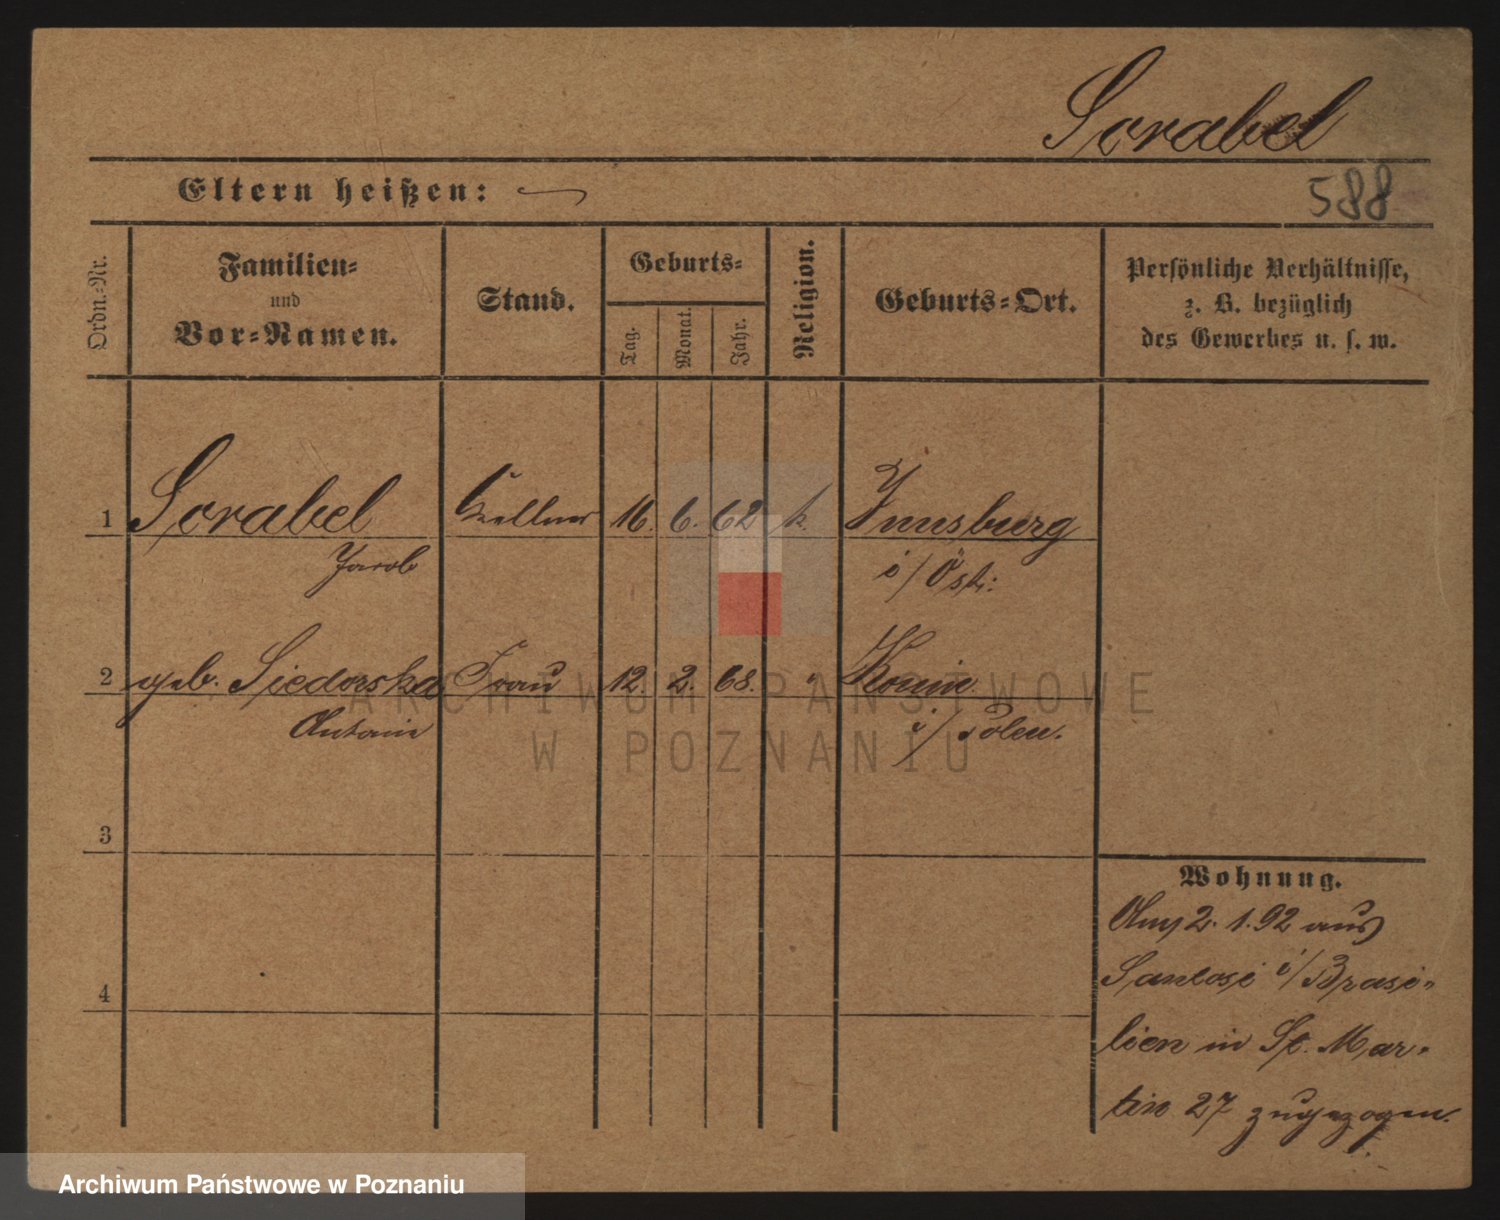 Sorabel
Eltern heißen:
588
Ordn.-Nr.
Familien-
und
Vor-Namen.
Stand.
Geburts-
Tag.
Monat.
Jahr.
Religion.
Geburts-Ort.
Persönliche Verhältnisse,
z. B. bezüglich
des Gewerbes u. s. w.
1 Sorabel Kellner 16. 6. 62 k. Innsburg
Jacob i/Östr:
2 geb. Siedorska Frau 12. 2. 68. " Konin
Antonie i/Polen.
3
4
Wohnung.
Am 2. 1. 92 aus
i/Brasi-
lien in St. Mar-
tin 27 zugezogen.
ARCHIWUM PAŃSTWOWE
W POZNANIU
Archiwum Państwowe w Poznaniu